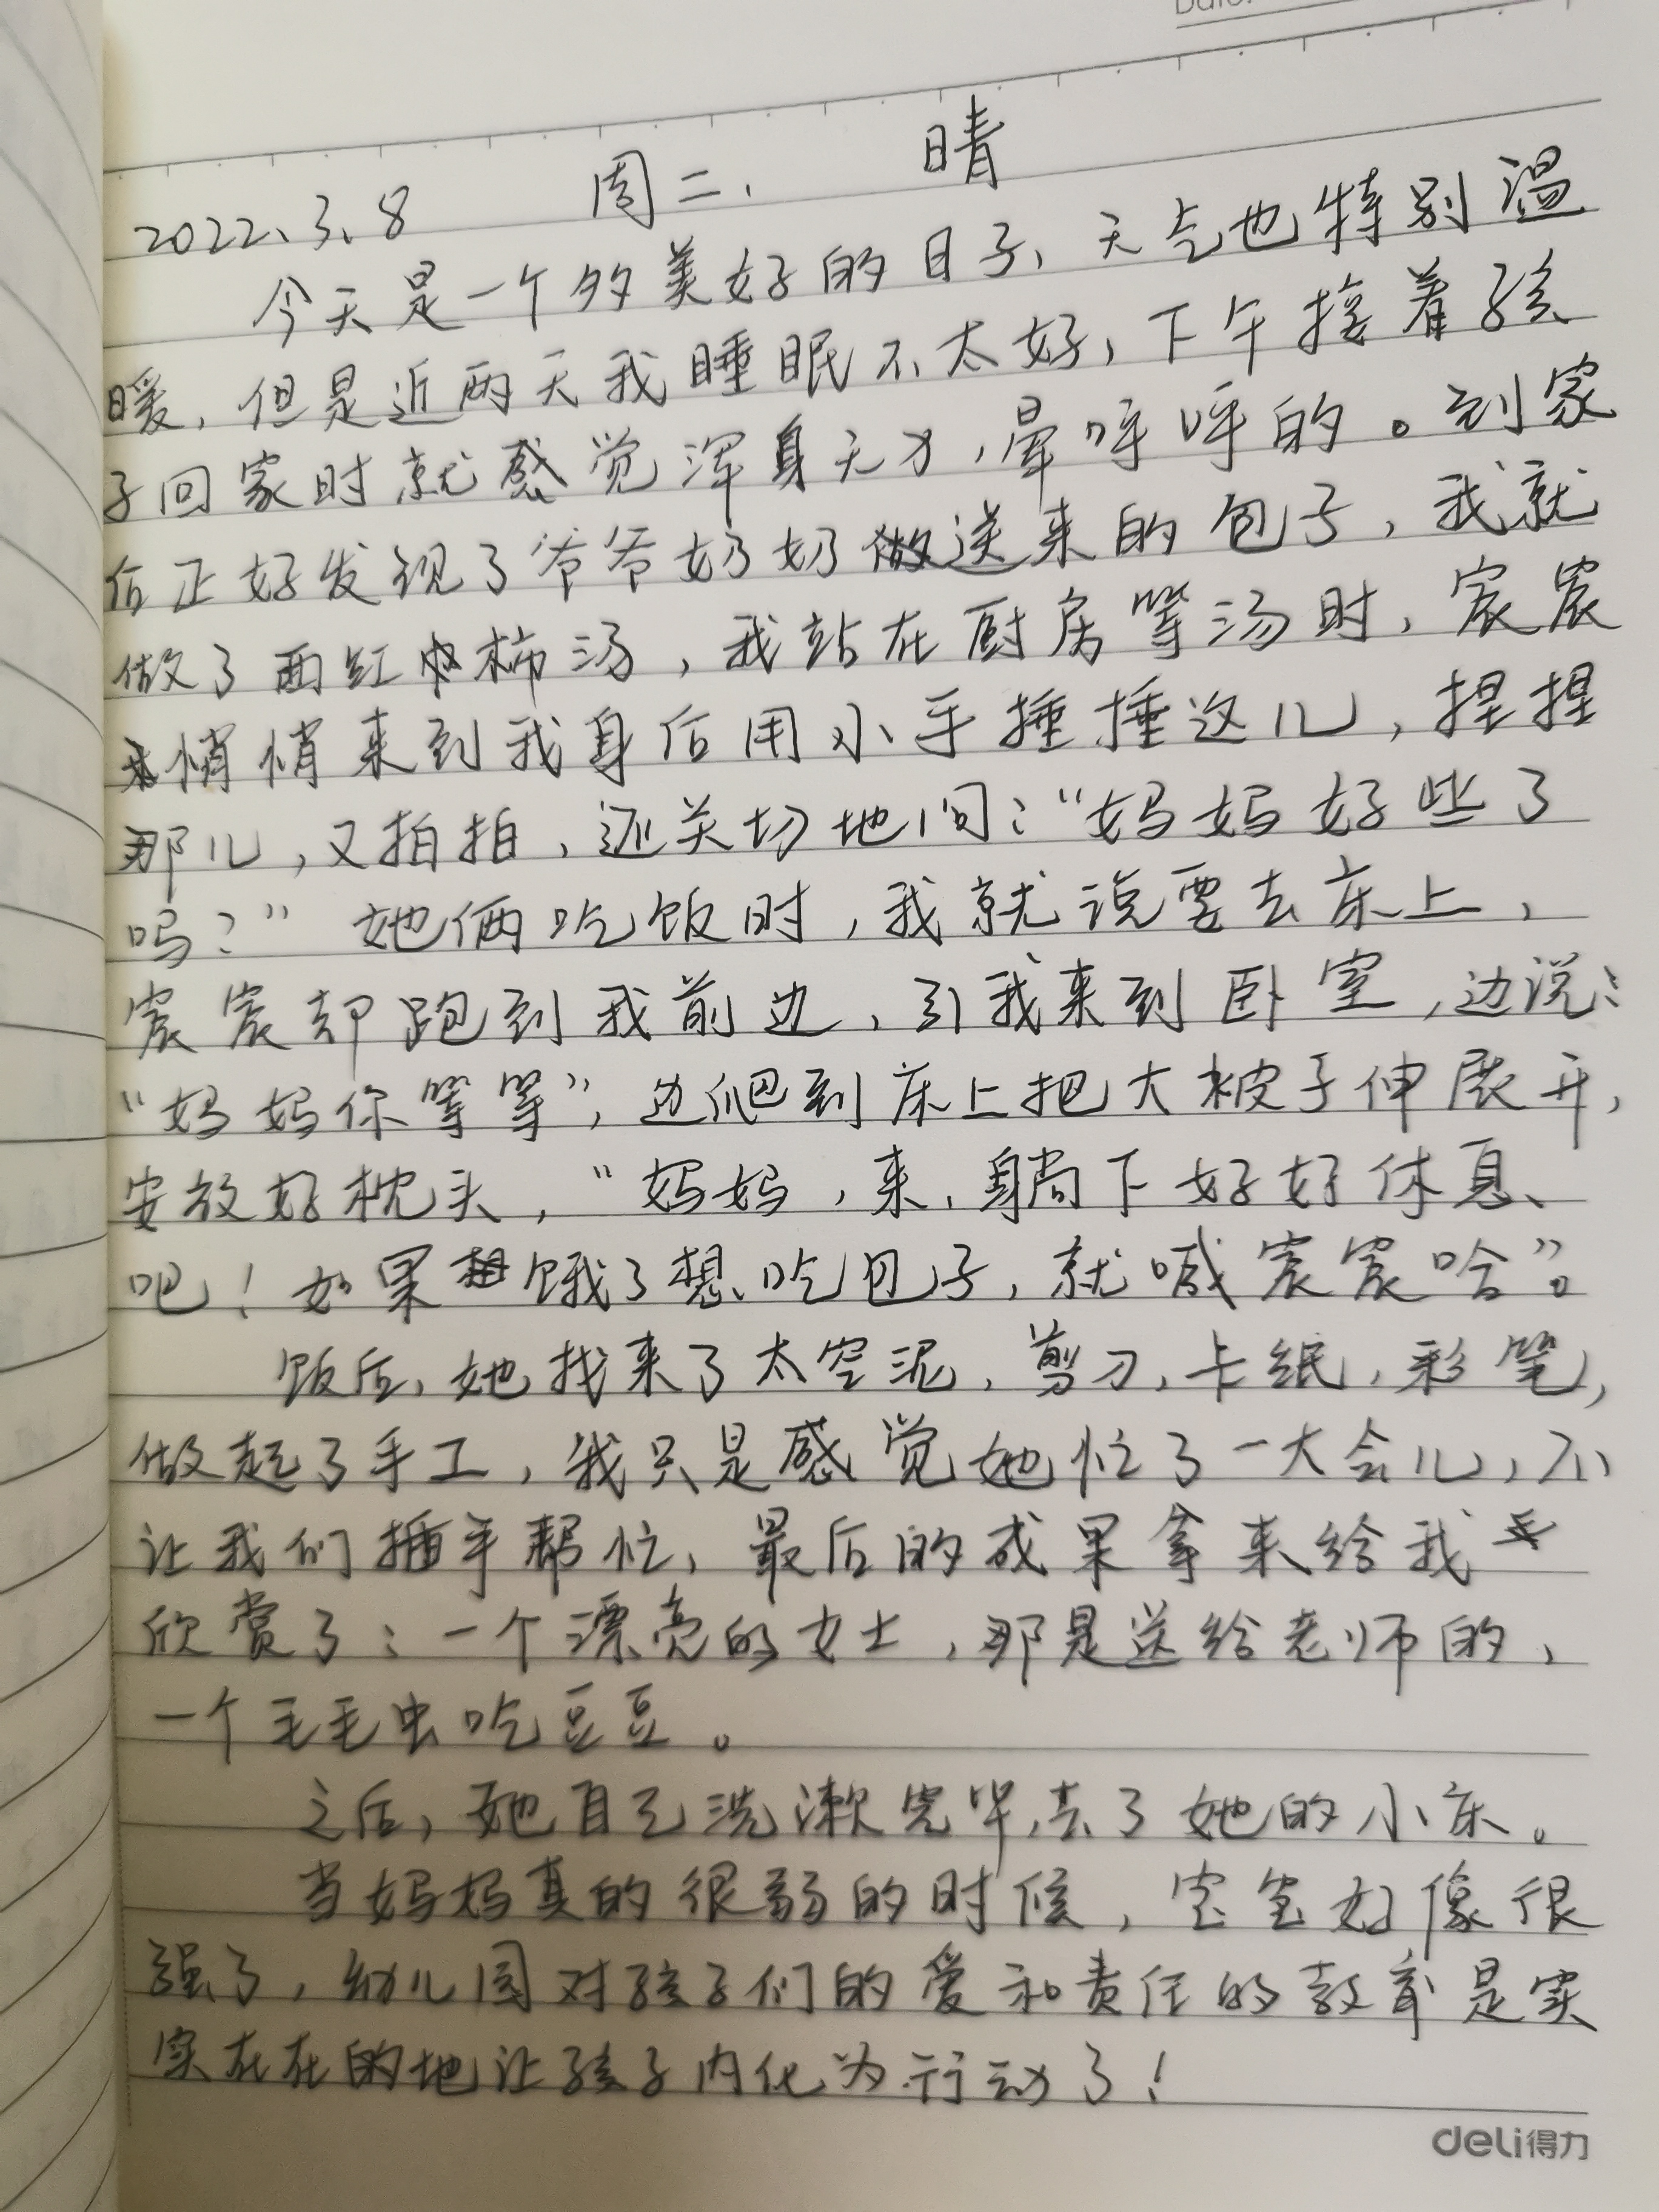 Date:
2022.3.8 周二、 晴
今天是一个多美好的日子、天气也特别温
暖，但是近两天我睡眠不太好，下午接着孩
子回家时就感觉浑身无力，晕呼呼的。到家
后正好发现了爷爷奶奶做送来的包子，我就
做了西红柿汤，我站在厨房等汤时，宸宸
悄悄来到我身后用小手捶捶这儿，捏捏
那儿，又拍拍，还关切地问：“妈妈好些了
吗？” 她俩吃饭时，我就说要去床上，
宸宸却跑到我前边，引我来到卧室，边说：
“妈妈你等等”，边爬到床上把大被子伸展开，
安放好枕头，“妈妈，来，躺下好好休息、
吧！如果饿了想吃包子，就喊宸宸哈”。
饭后，她找来了太空泥，剪刀，卡纸，彩笔，
做起了手工，我只是感觉她忙了一大会儿，不
让我们插手帮忙，最后的成果拿来给我
欣赏了：一个漂亮的女士，那是送给老师的，
一个毛毛虫吃豆豆。
之后，她自己洗漱完毕，去了她的小床。
当妈妈真的很弱的时候，宝宝好像很
强了，幼儿园对孩子们的爱和责任的教育是实
实在在的地让孩子内化为行动了！
deli得力